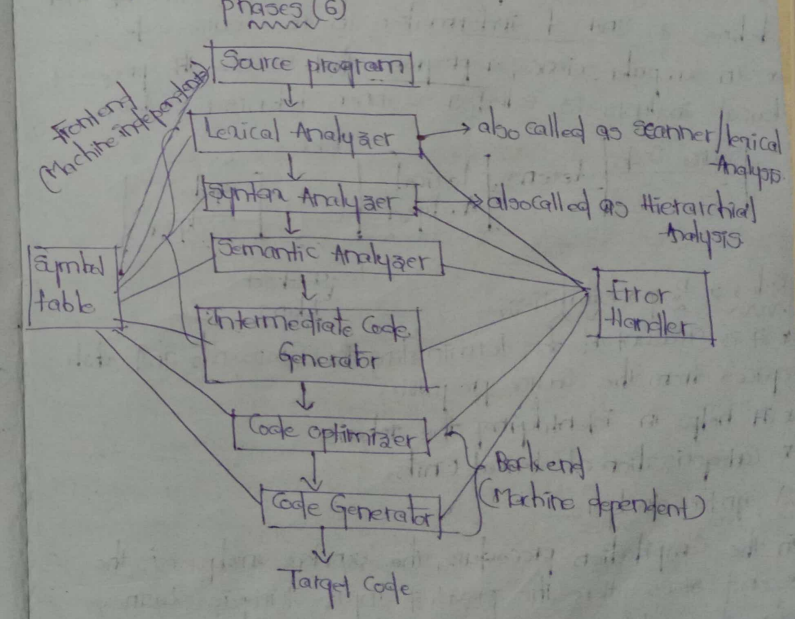 phases (6)
Source program
Frontend
(Machine independent)
Lexical Analyzer
also called as scanner/lexical
Analysis
Syntax Analyzer
also called as Hierarchial
Analysis
Semantic Analyzer
Symbol
table
Error
Handler
Intermediate Code
Generator
Code optimizer
Backend
(Machine dependent)
Code Generator
Target Code